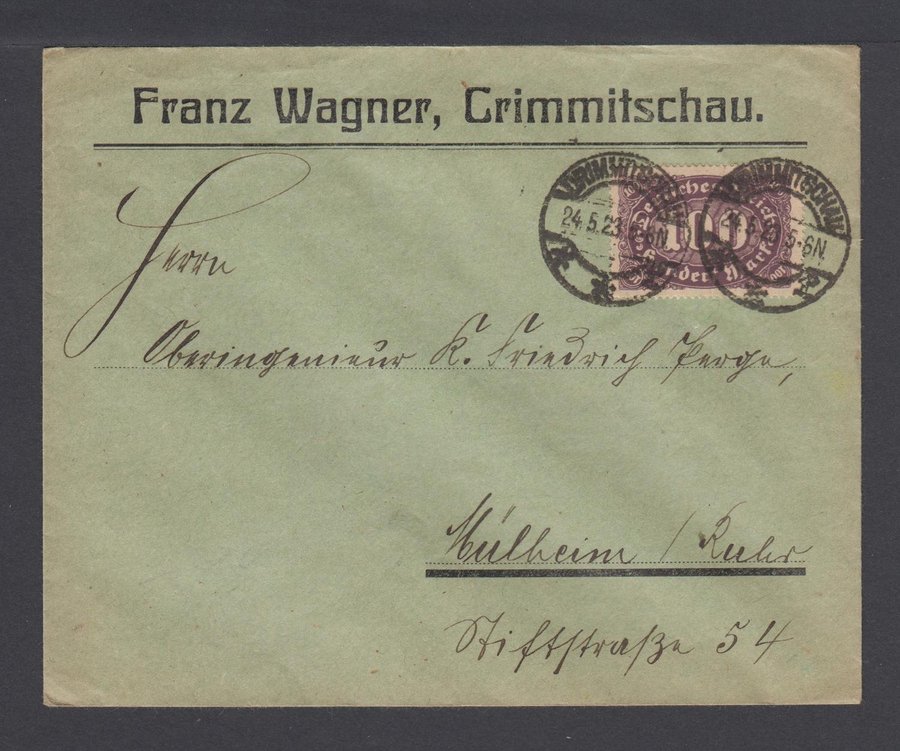 Franz Wagner, Crimmitschau.
CRIMMITSCHAU
24.5.23. 5-6N.
Deutsches Reich
100
Hundert Mark
CRIMMITSCHAU
24.5.23. 5-6N.
Herrn
Oberingenieur K. Friedrich Perge,
Mülheim / Ruhr
Stiftstraße 54